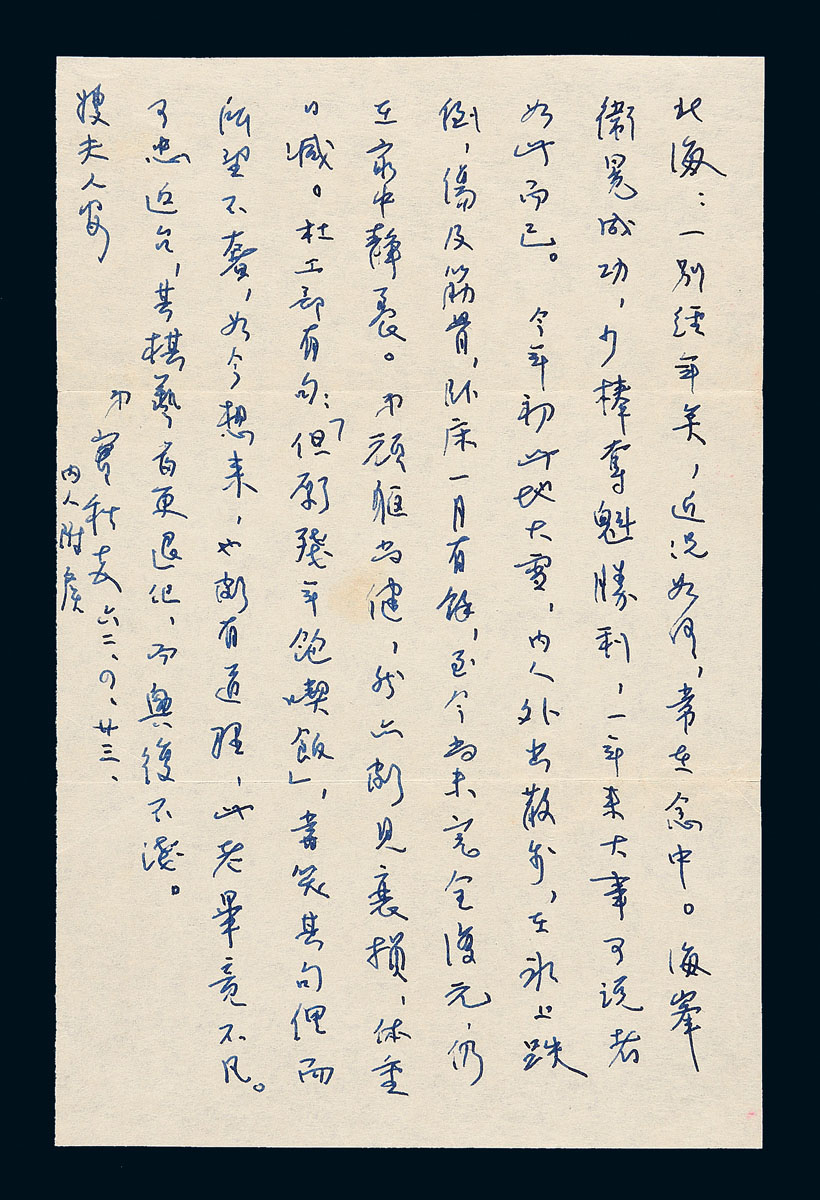 北海：一別經年矣，近況如何，常在念中。海峯
衛冕成功，少棒奪魁勝利，一年來大事可說者
如此而已。今年初此地大雪，內人外出散步，在冰上跌
倒，傷及筋骨，臥床一月有餘，至今尚未完全復元，仍
在家中靜養。弟頑軀尚健，然亦漸見衰損，体重
日減。杜工部有句：「但願殘年飽喫飯」，嘗笑其句俚而
所望不奢，如今想來，也頗有道理，此老畢竟不凡。
可忠近台，其棋藝百更退化，而興復不淺。
嫂夫人安
弟實秋 六二、九、廿三、
內人附候